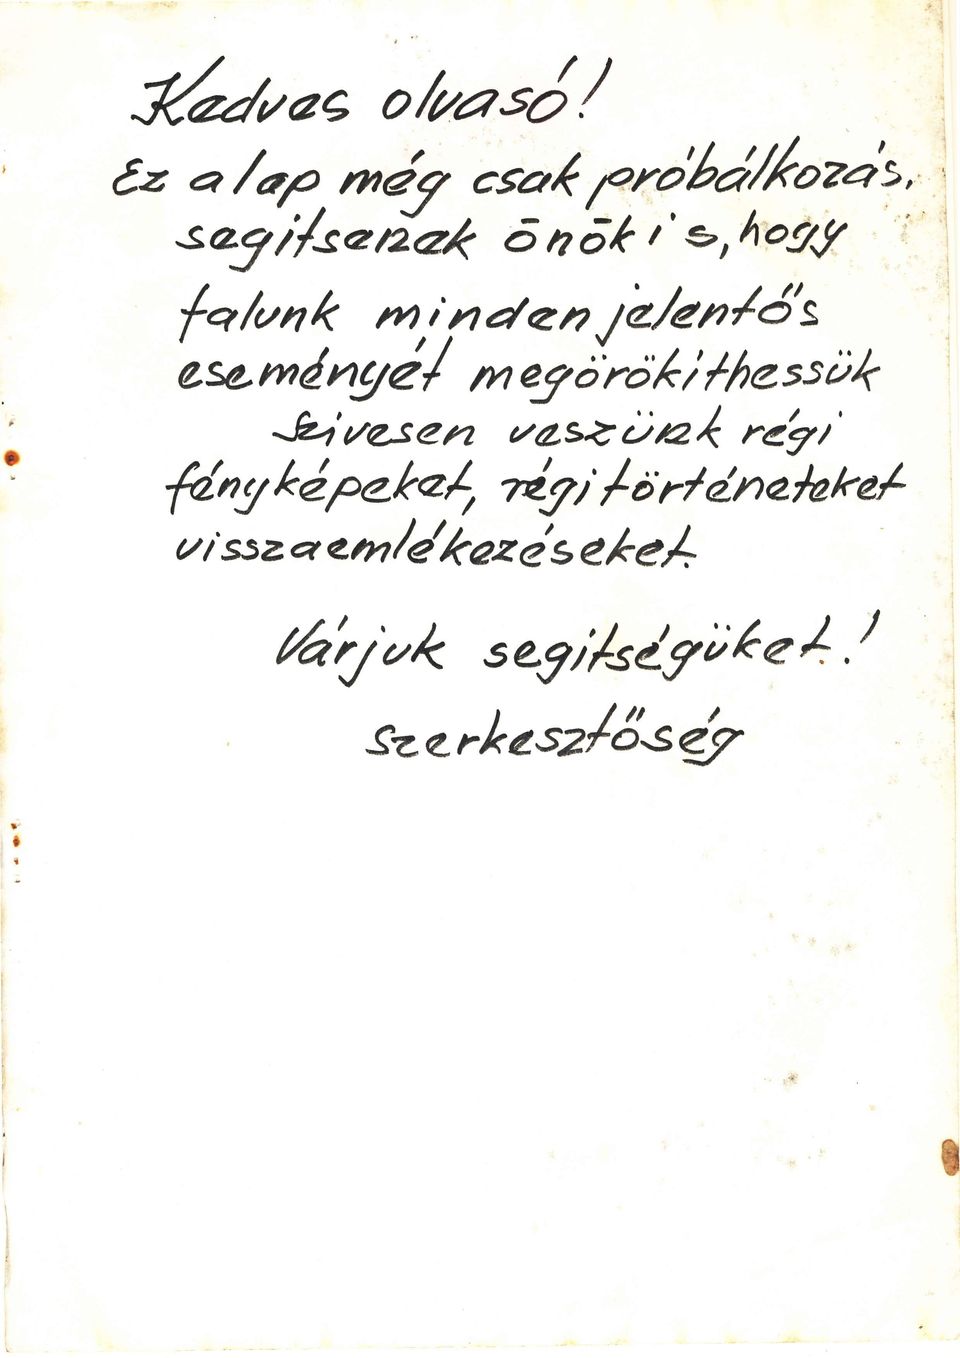 Kedves olvasó!
Ez a lap még csak próbálkozás,
segitsenek önök is, hogy
falunk minden jelentős
eseményét megörökithessük
Szivesen veszünk régi
fényképeket, régi történeteket
visszaemlékezéseket.
Várjuk segitségüket.!
Szerkesztőség